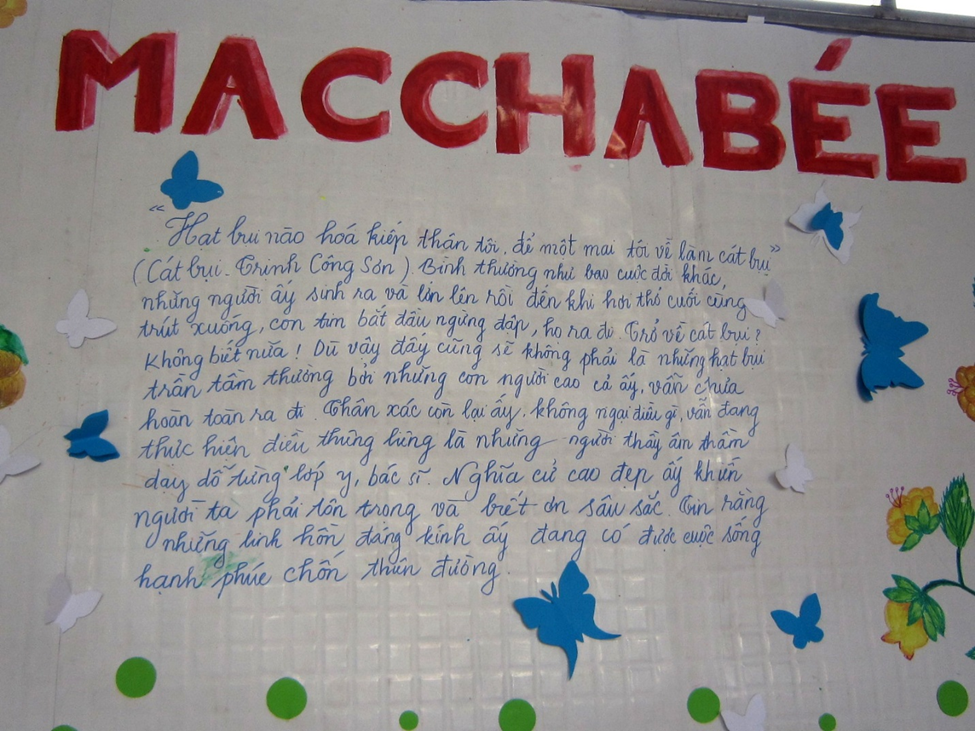 MACCHABÉE
"Hạt bụi nào hoá kiếp thân tôi, để một mai tôi về làm cát bụi"
(Cát bụi - Trịnh Công Sơn). Bình thường như bao cuộc đời khác,
những người ấy sinh ra và lớn lên rồi đến khi hơi thở cuối cùng
trút xuống, con tim bắt đầu ngừng đập, họ ra đi. Trở về cát bụi?
Không biết nữa! Dù vậy đây cũng sẽ không phải là những hạt bụi
trần tầm thường bởi những con người cao cả ấy, vẫn chưa
hoàn toàn ra đi. Thân xác còn lại ấy, không ngại điều gì, vẫn đang
thực hiện điều thiêng liêng là những người thầy âm thầm
dạy dỗ từng lớp y, bác sĩ. Nghĩa cử cao đẹp ấy khiến
người ta phải tôn trọng và biết ơn sâu sắc. Tin rằng
những linh hồn đáng kính ấy đang có được cuộc sống
hạnh phúc chốn thiên đường.